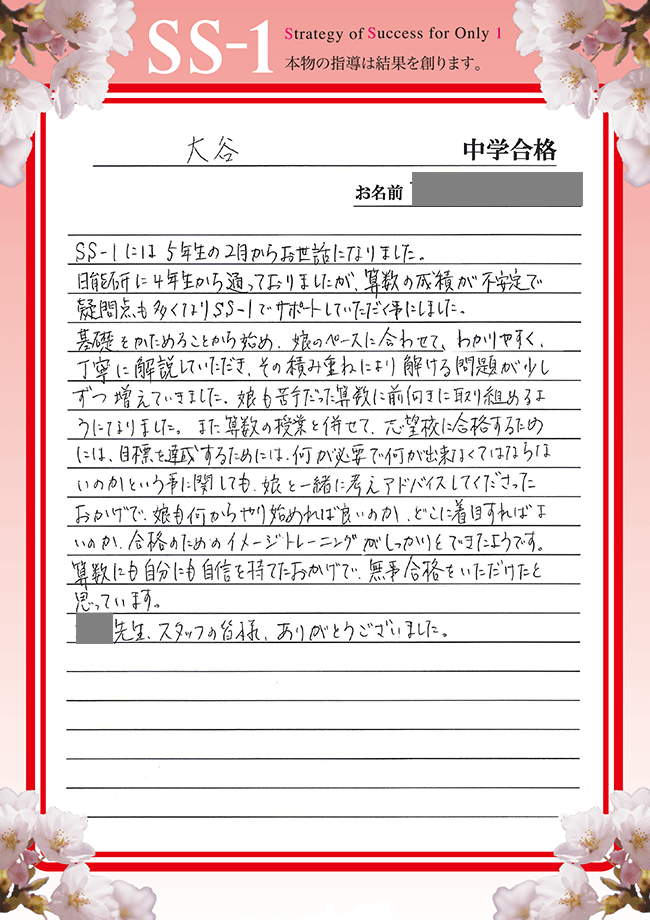 SS-1 Strategy of Success for Only 1
本物の指導は結果を創ります。
大谷 中学合格
お名前
SS-1には5年生の2月からお世話になりました。
日能研に4年生から通っておりましたが、算数の成績が不安定で
疑問点も多くなりSS-1でサポートしていただく事にしました。
基礎をかためることから始め、娘のペースに合わせて、わかりやすく、
丁寧に解説していただき、その積み重ねにより解ける問題が少し
ずつ増えていきました、娘も苦手だった算数に前向きに取り組めるよ
うになりました。また算数の授業と併せて、志望校に合格するため
には、目標を達成するためには、何が必要で何が出来なくてはならな
いのかという事に関しても、娘と一緒に考えアドバイスしてくださった
おかげで、娘も何からやり始めれば良いのか、どこに着目すればよ
いのか、合格のためのイメージトレーニングがしっかりとできたようです。
算数にも自分にも自信を持てたおかげで、無事合格をいただけたと
思っています。
先生、スタッフの皆様、ありがとうございました。